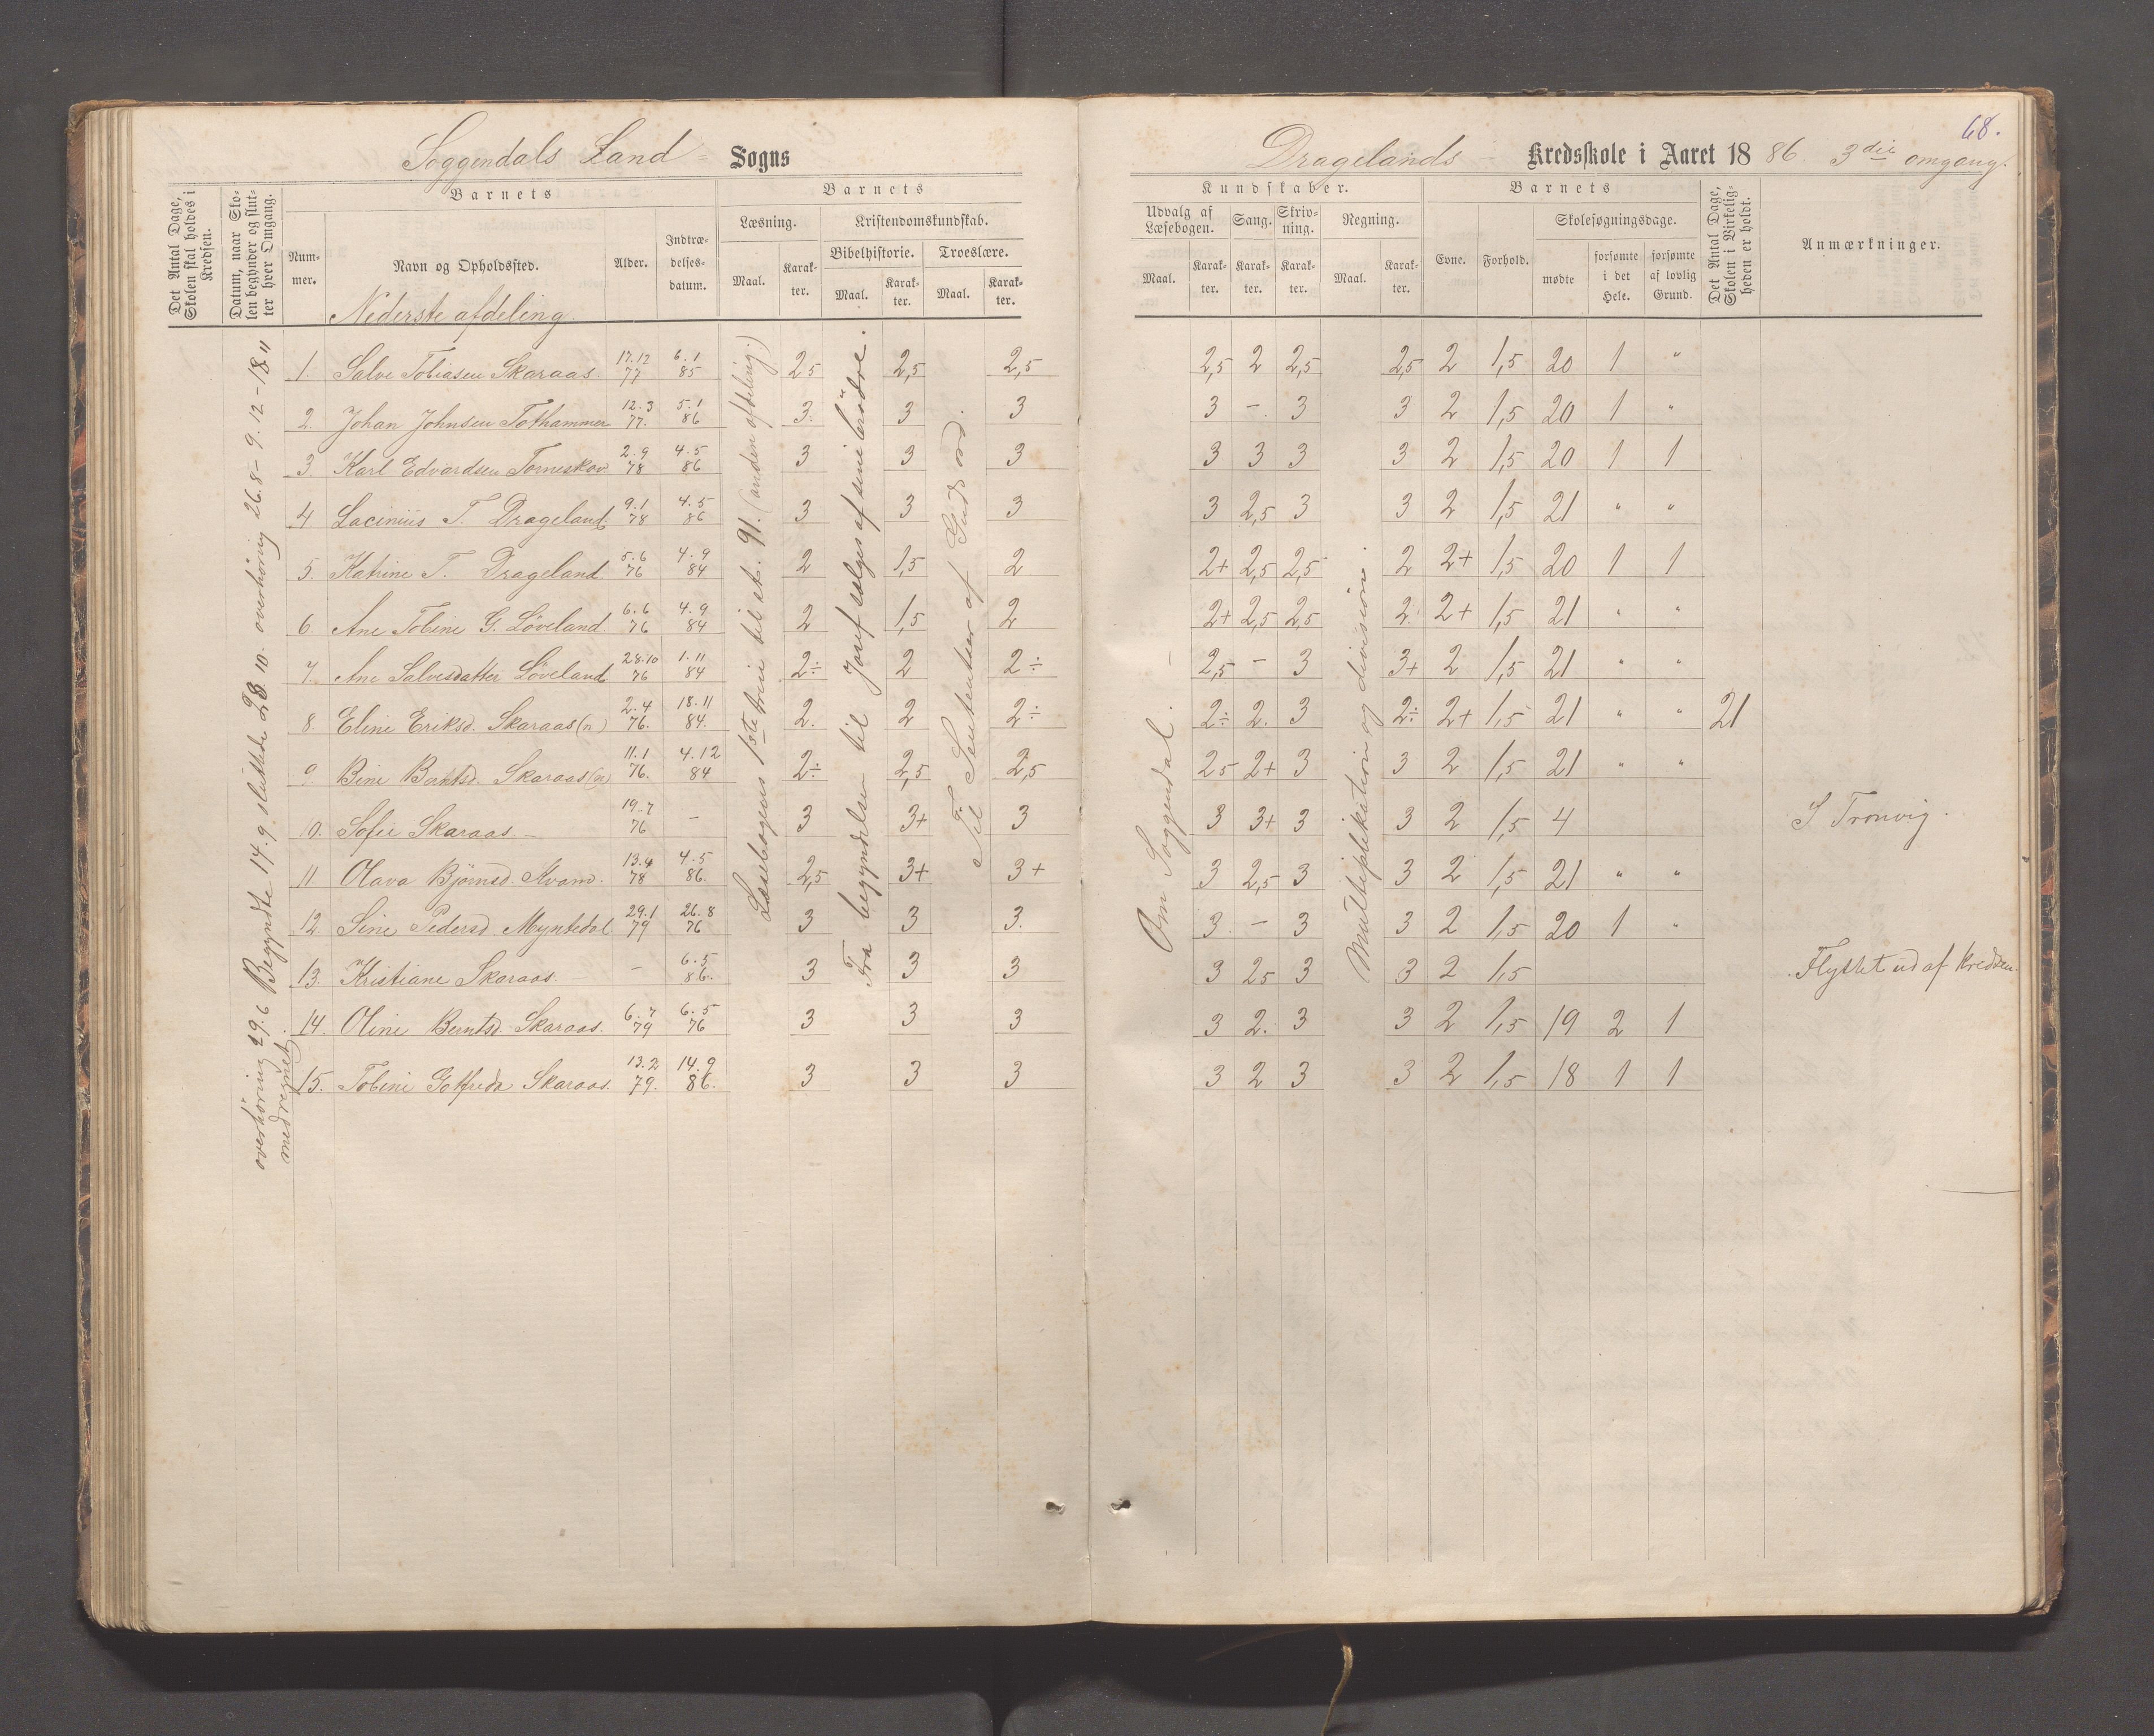 68.
Soggendals Land- Sogns
Dragelands Kredsskole i Aaret 1886. 3die omgang.
Det Antal Dage, Skolen skal holdes i Kredsen.
Datum, naar Skolen begynder og slutter hver Omgang.
Barnets
Nummer.
Navn og Opholdssted.
Alder.
Indtrædelsesdatum.
Barnets
Læsning.
Maal.
Karakter.
Kristendomskundskab.
Bibelhistorie.
Maal.
Karakter.
Troeslære.
Maal.
Karakter.
Kundskaber.
Udvalg af Læsebogen.
Maal.
Karakter.
Sang.
Karakter.
Skrivning.
Karakter.
Regning.
Maal.
Karakter.
Barnets
Evne.
Forhold.
Skolesøgningsdage.
mødte
forsømte i det Hele.
forsømte af lovlig Grund.
Det Antal Dage, Skolen i Virkeligheden er holdt.
Anmærkninger.
Nederste afdeling.
Begyndte 14.9. sluttede 28.10. overhöring 26.8 - 9.12 - 18.11
overhöring 29.6
medregnet.
Læsebogens 1ste trin til st. 91. (anden afdeling.)
Fra begyndelsen til Josef sælges af sine brödre.
Til Sententser af Guds ord.
Om Soggendal. -
Multiplikation og division.
1. Salve Tobiasen Skaraas. 17.12 77 6.1 85 2,5 2,5 2,5 2,5 2 2,5 2,5 2 1,5 20 1 "
2. Johan Johnsen Tothammer 12.3 77. 5.1 86 3. 3 3 3 -. 3 3 2 1,5 20 1 "
3 Karl Edvardsen Torneskov 2.9 78 4.5 86 3 3 3 3 3 3 3 2 1,5 20 1 1
4 Laciniüs T. Drageland. 9.1 78 4.5 86 3 3 3 3 2,5 3 3 2 1,5 21 " "
5. Katrine T. Drageland. 5.6 76 4.9 84 2 1,5 2 2+ 2,5 2,5 2 2+ 1,5 20 1 1
6. Ane Tobine G. Löveland. 6.6 76 4.9 84 2 1,5 2 2+ 2,5 2,5 2. 2+ 1,5 21 " "
7. Ane Salvesdatter Löveland 28.10 76 1.11 84 2÷ 2 2÷ 2,5 - 3 3+ 2 1,5 21 " "
8. Eline Eriksd. Skaraas (n) 2.4 76. 18.11 84. 2. 2 2÷ 2÷ 2. 3 2÷ 2+ 1,5 21 " " 21
9 Bine Berntsd. Skaraas 11.1 76. 4.12 84 2÷ 2,5 2,5 25 2+ 3 3 2 1,5 21 " "
10. Sofie Skaraas - 19.7 76 - 3 3+ 3 3 3+ 3 3 2 1,5 4 I Tronvig.
11. Olava Björnsd. Kvam. 13.4 78 4.5 86. 2,5 3+ 3+ 3 2,5 3 3 2 1,5 21 " "
12. Sine Pedersd Myntedal 29.1 79 26.8 76 3 3 3. 3. - 3 3 2 1,5 20 1 "
13. Kristiane Skaraas. - 6.5 86. 3 3 3 3 25 3 3 2 1,5 Flyttet ud af kredsen.
14. Oline Berntsd. Skaraas. 6.7 79 6.5 76 3 3 3 3 2. 3 3 2 1,5 19 2 1
15. Tobine Gotfreda Skaraas. 13.2 79. 14.9 86. 3 3 3 3 2 3 3 2 1,5 18 1 1